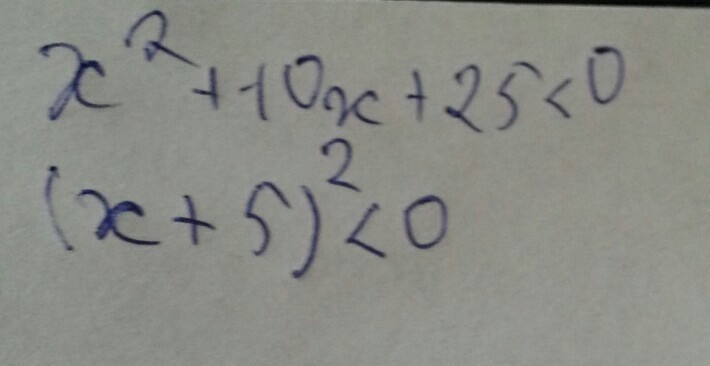 x²+10x+25<0
(x+5)²<0